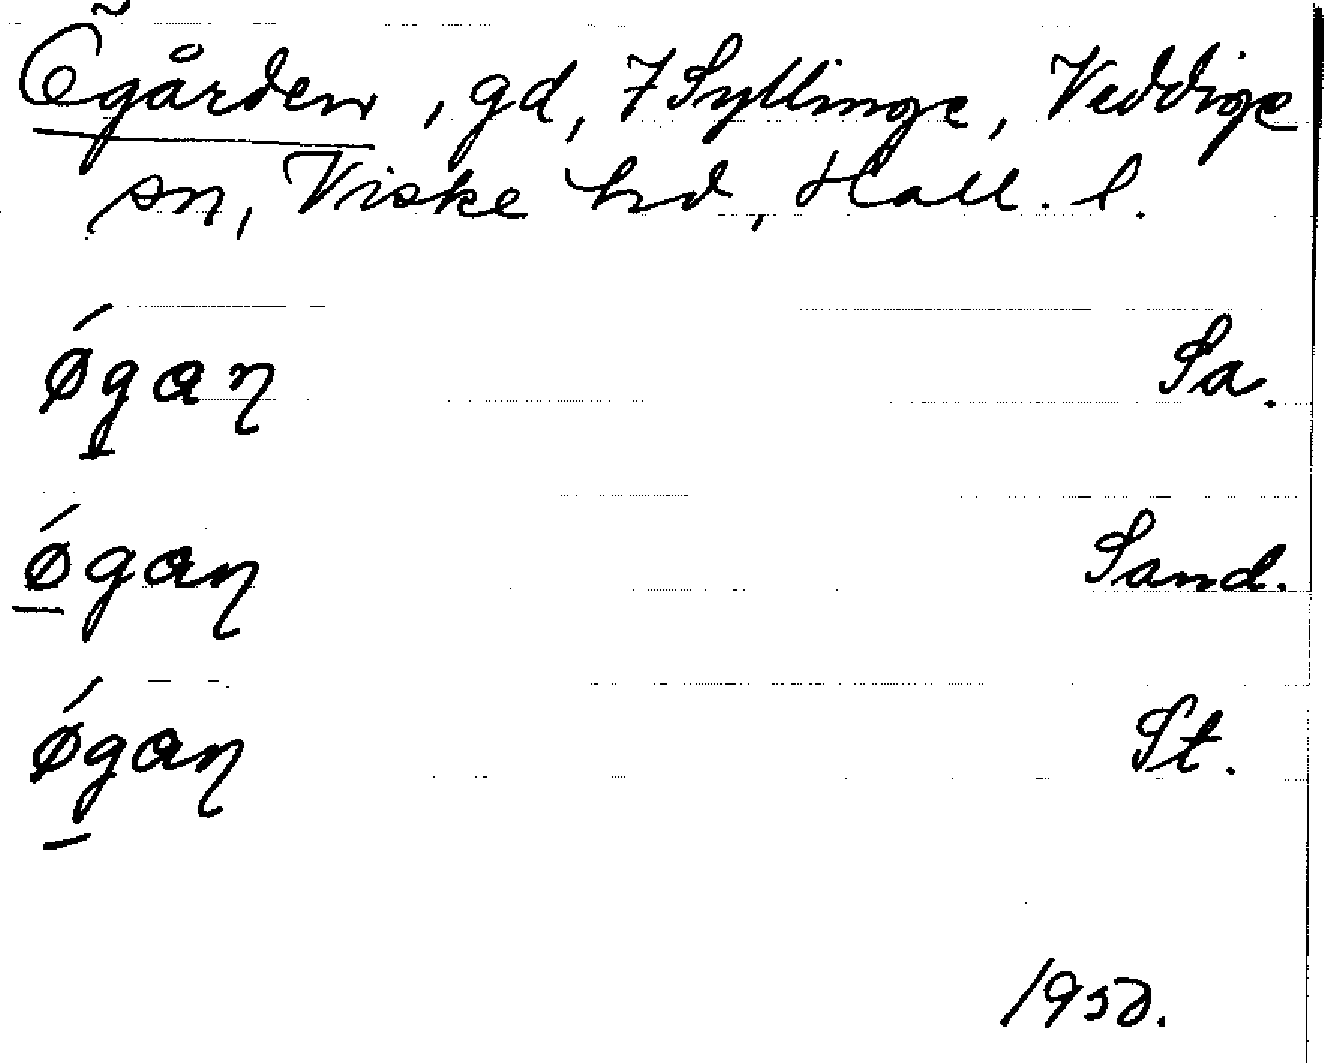 Ögården, gd, 7 Syllinge, Veddige
sn, Viske hd, Hall. l.
ǿgaɳ Sa.
ǿgaɳ Sand.
ǿgaɳ St.
1950.